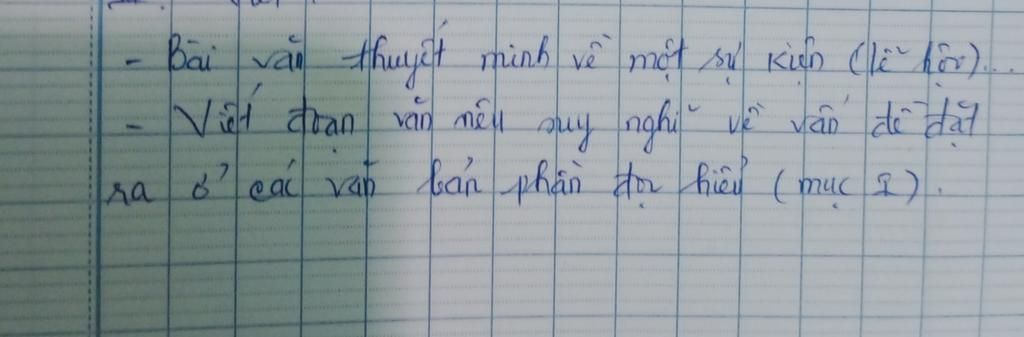 - Bài văn thuyết minh về một sự kiện (lễ hội)...
- Viết đoạn văn nêu suy nghĩ về vấn đề đặt
ra ở các văn bản phần đọc hiểu (mục I).